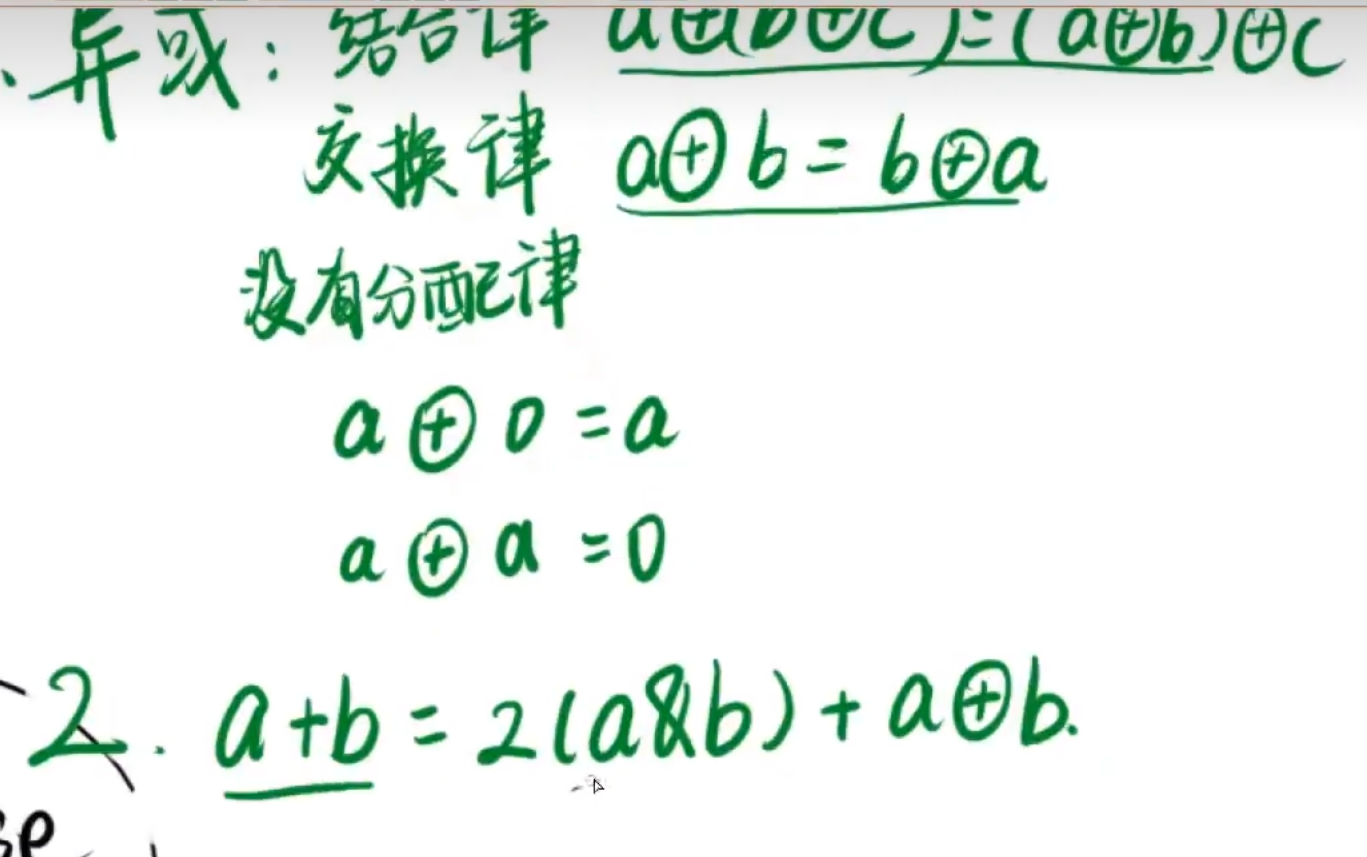 异或: 结合律 a⊕(b⊕c)=(a⊕b)⊕c
交换律 a⊕b=b⊕a
没有分配律
a⊕0=a
a⊕a=0
2. a+b=2(a&b)+a⊕b.